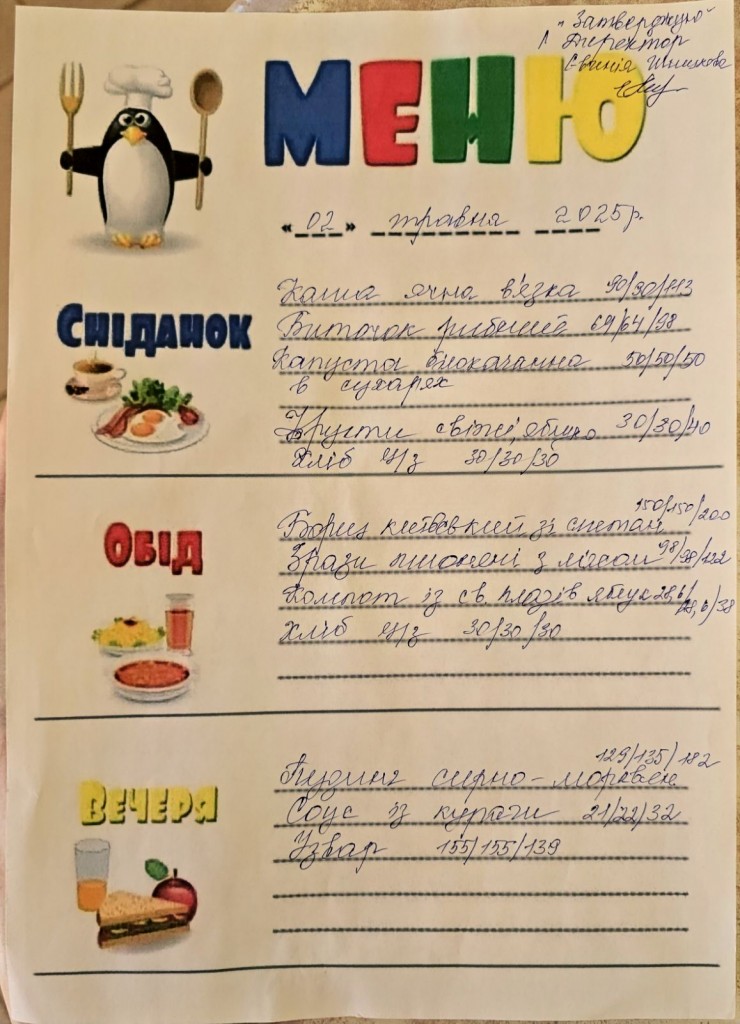 "Затверджую"
Директор
Євгенія Шишкова
МЕНЮ
«02» травня 2025р.
СНІДАНОК
Каша ячна в'язка 90/90/113
Биточок рибний 69/64/98
Капуста білокачанна 50/50/50
в сухарях
Фрукти свіжі, яблуко 30/30/40
Хліб ц/з 30/30/30
ОБІД
Борщ київський зі сметан 150/150/200
Зрази пшонені з м'ясом 98/98/122
Компот із св. плодів яблук 28,6/
28,6/38
Хліб ц/з 30/30/30
ВЕЧЕРЯ
129/135/182
Пудинг сирно-морквян.
Соус із кураги 21/22/32
Узвар 155/155/139